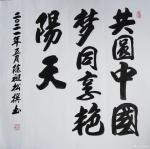 共圆中國
梦同享艳
陽天
二〇二一年五月徐祖松撰书